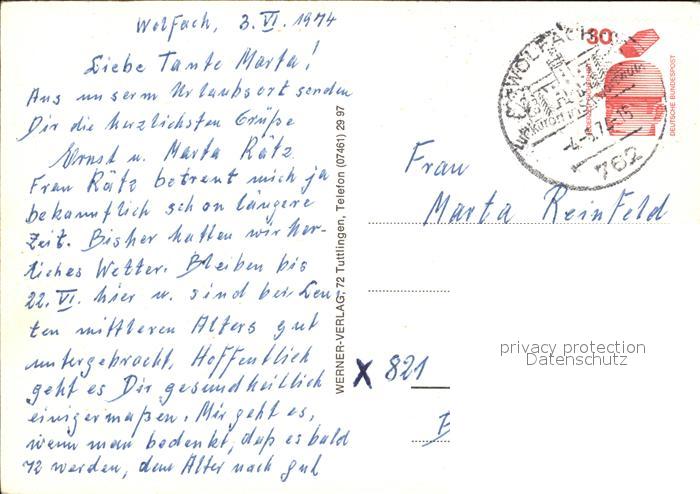 Wolfach, 3. VI. 1974
Liebe Tante Marta!
Aus unserm Urlaubsort senden
Dir die herzlichsten Grüße
Ernst u. Marta Rätz
Frau Rätz betreut mich ja
bekanntlich schon längere
Zeit. Bisher hatten wir herr-
liches Wetter. Bleiben bis
22. VI. hier u. sind bei Leu-
ten mittleren Alters gut
untergebracht. Hoffentlich
geht es Dir gesundheitlich
einigermaßen. Mir geht es,
wenn man bedenkt, daß es bald
72 werden, dem Alter nach gut
WERNER-VERLAG, 72 Tuttlingen, Telefon (07461) 29 97
30
DEUTSCHE BUNDESPOST
WOLFACH
762
Frau
Marta Reinfeld
privacy protection
Datenschutz
X 821